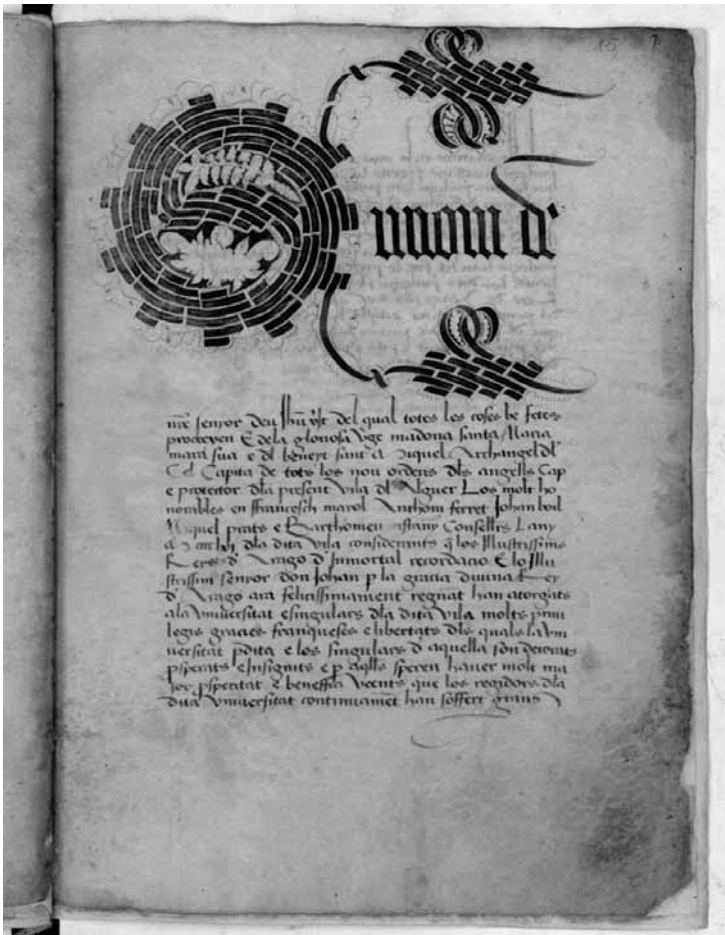 15 7
En nom de
nre senyor deu Jhu xst del qual totes les coses be fetes
proceeyen E dela gloriosa vge madona santa Maria
mara sua e dl beneyt sant Miquel Archangel dl
Cel Capita de tots los nou ordens dls angells Cap
e protector dla present vila dl Alguer Los molt ho
norables en ffrancesch marol Anthoni ferret Johan boil
Miquel prats e Barthomeu Consellrs Lany
dla dita vila considerants q los Illustrissims
Reys d Arago d Inmortal recordacio E lo Illu
strissim senyor don Johan p la gracia divina Rey
d Arago ara felicissimament regnat han atorgats
ala vniuersitat e singulars dla dita vila molts priui
legis gracies franqueses e libertats dls quals la vni
uersitat pdita e los singulars d aquella son decorats
psperats e Insignits e p aqlls speren hauer molt ma
jor psperitat e beneffici veents que los regidors dla
dita vniuersitat continuamet han soffert grans